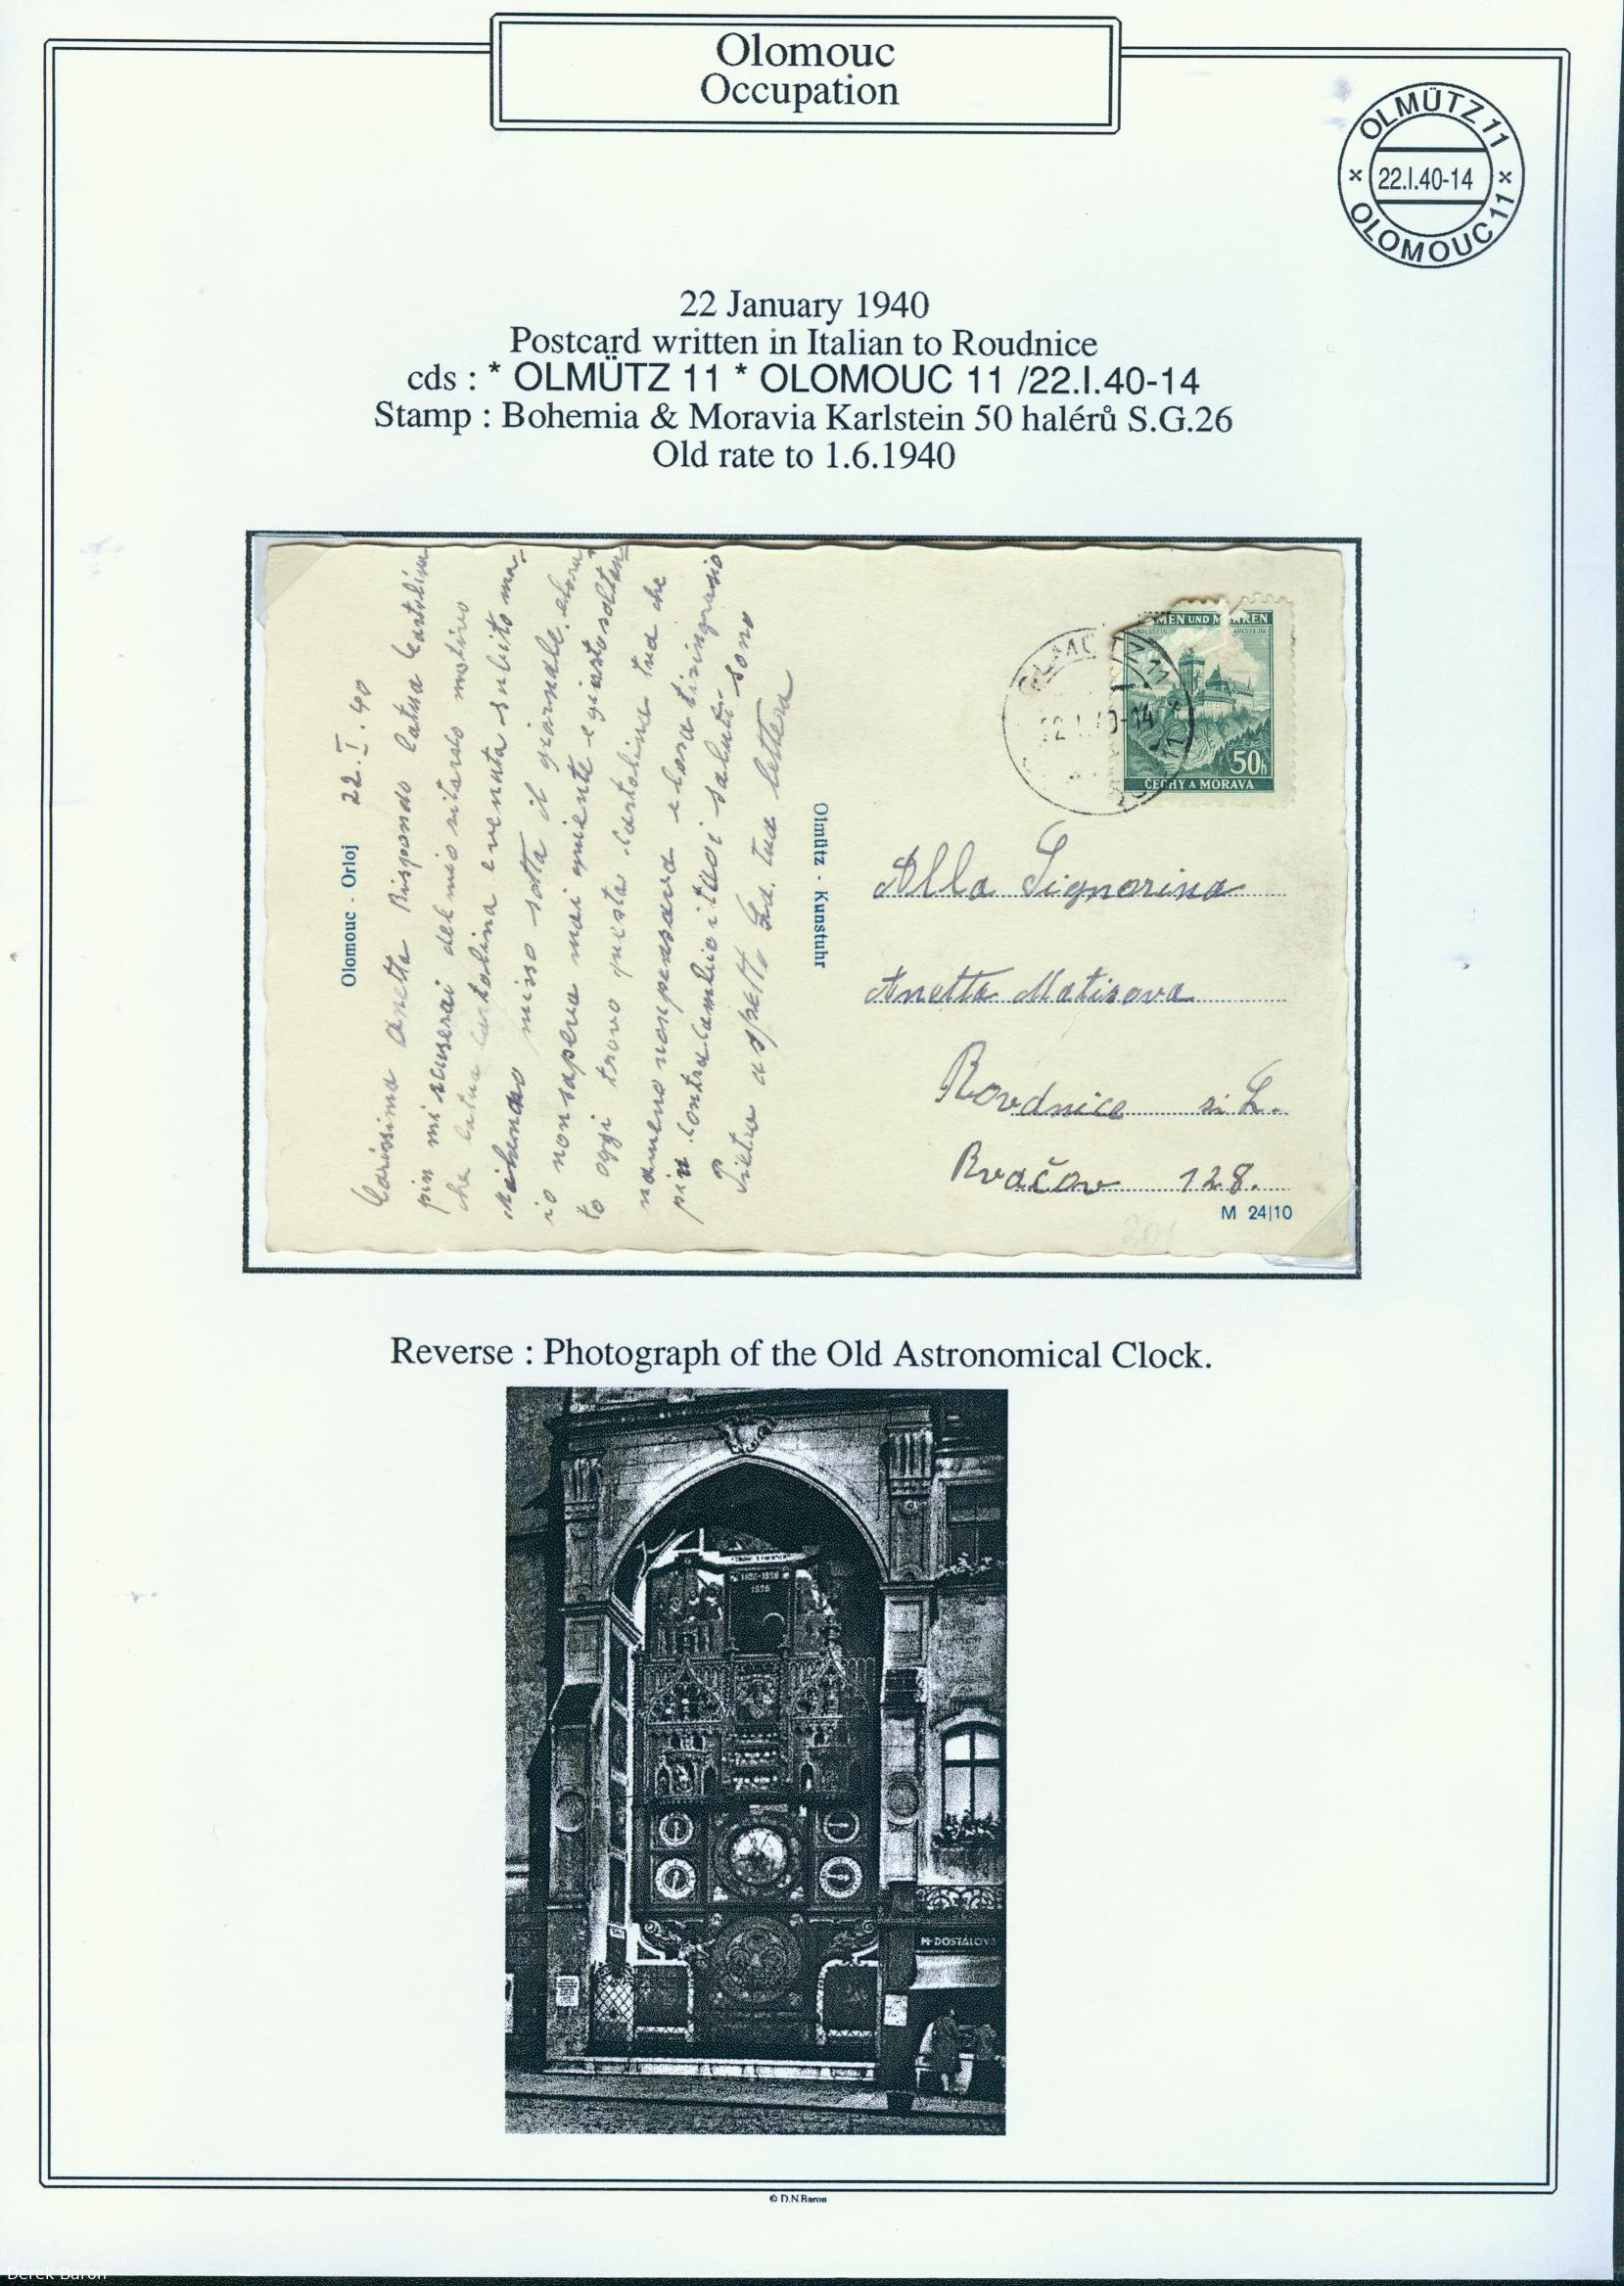 Olomouc
Occupation
OLMÜTZ 11
22.I.40-14
OLOMOUC 11
22 January 1940
Postcard written in Italian to Roudnice
cds : * OLMÜTZ 11 * OLOMOUC 11 /22.I.40-14
Stamp : Bohemia & Moravia Karlstein 50 halérů S.G.26
Old rate to 1.6.1940
Olomouc - Orloj 22.I.40
Carissima Anetta Rispondo latua Cartolina
pin mi scuserai del mio ritardo motivo
che latua cartolina evenuta subito ma
misso sotta il giornale. elora
io non sapeva mai gniente e giusto soltan
to oggi trovo questa Cartolina tua che
nameno non pensava elora tiringrasio
pin Contracambio ituoi saluti sono
aspetto La. tua lettera
Olmütz - Kunstuhr
MEN UND MÄHREN
50h
ČECHY A MORAVA
22.I.40-14
Alla Signorina
Anetta Matisova
Rovdnice
Rvačov 128.
M 24|10
Reverse : Photograph of the Old Astronomical Clock.
M·DOSTALOVA
© D.N.Baron
Derek Baron